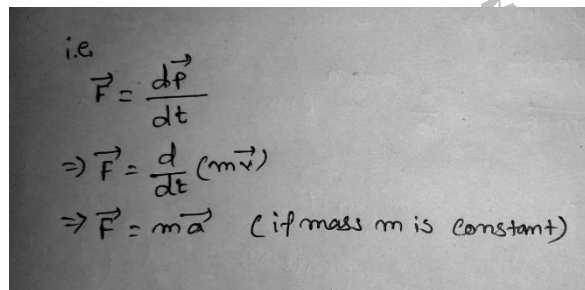 i.e.
F⃗ = dp⃗/dt
⇒ F⃗ = d/dt (mv⃗)
⇒ F⃗ = ma⃗ (if mass m is constant)